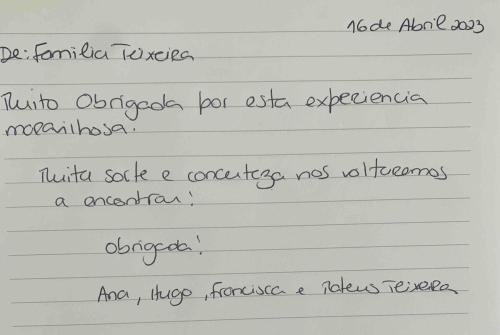 16 de Abril 2023
De: Familia Teixeira
Muito Obrigada por esta experiencia
maravilhosa.
Muita sorte e concerteza nos voltaremos
a encontrar!
Obrigada!
Ana, Hugo, Francisca e Mateus Teixeira